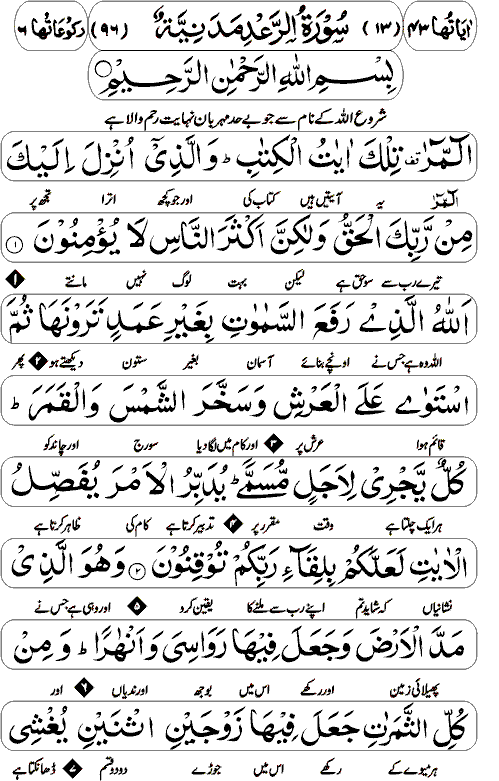 اٰيَاتُهَا ۴۳ (۱۳) سُوْرَةُ الرَّعْدِ مَدَنِيَّةٌ (۹۶) رُكُوْعَاتُهَا ۶
بِسْمِ اللهِ الرَّحْمٰنِ الرَّحِيْمِ
شروع اللہ کے نام سے جو بے حد مہربان نہایت رحم والا ہے
الٓمّٓرٰ تِلْكَ اٰيٰتُ الْكِتٰبِ ؕ وَالَّذِىْۤ اُنْزِلَ اِلَيْكَ
الٓمّٓرٰ یہ آیتیں ہیں کتاب کی اور جو کچھ اترا تجھ پر
مِنْ رَّبِّكَ الْحَقُّ وَلٰكِنَّ اَكْثَرَ النَّاسِ لَا يُؤْمِنُوْنَ ۱
تیرے رب سے سو حق ہے لیکن بہت لوگ نہیں مانتے ۱
اَللهُ الَّذِىْ رَفَعَ السَّمٰوٰتِ بِغَيْرِ عَمَدٍ تَرَوْنَهَا ثُمَّ
اللہ وہ ہے جس نے اونچے بنائے آسمان بغیر ستون دیکھتے ہو ۲ پھر
اسْتَوٰى عَلَى الْعَرْشِ وَسَخَّرَ الشَّمْسَ وَالْقَمَرَ ؕ
قائم ہوا عرش پر ۳ اور کام میں لگا دیا سورج اور چاند کو
كُلٌّ يَّجْرِىْ لِاَجَلٍ مُّسَمًّى ؕ يُدَبِّرُ الْاَمْرَ يُفَصِّلُ
ہر ایک چلتا ہے وقت مقرر پر ۴ تدبیر کرتا ہے کام کی ظاہر کرتا ہے
الْاٰيٰتِ لَعَلَّكُمْ بِلِقَآءِ رَبِّكُمْ تُوْقِنُوْنَ ۲ وَهُوَ الَّذِىْ
نشانیاں کہ شاید تم اپنے رب سے ملنے کا یقین کرو ۵ اور وہی ہے جس نے
مَدَّ الْاَرْضَ وَجَعَلَ فِيْهَا رَوَاسِىَ وَاَنْهٰرًا ؕ وَمِنْ
پھیلائی زمین اور رکھے اس میں بوجھ اور ندیاں ۶ اور
كُلِّ الثَّمَرٰتِ جَعَلَ فِيْهَا زَوْجَيْنِ اثْنَيْنِ يُغْشِى
ہر میوے کے رکھے اس میں جوڑے دو دو قسم ۷ ڈھانکتا ہے